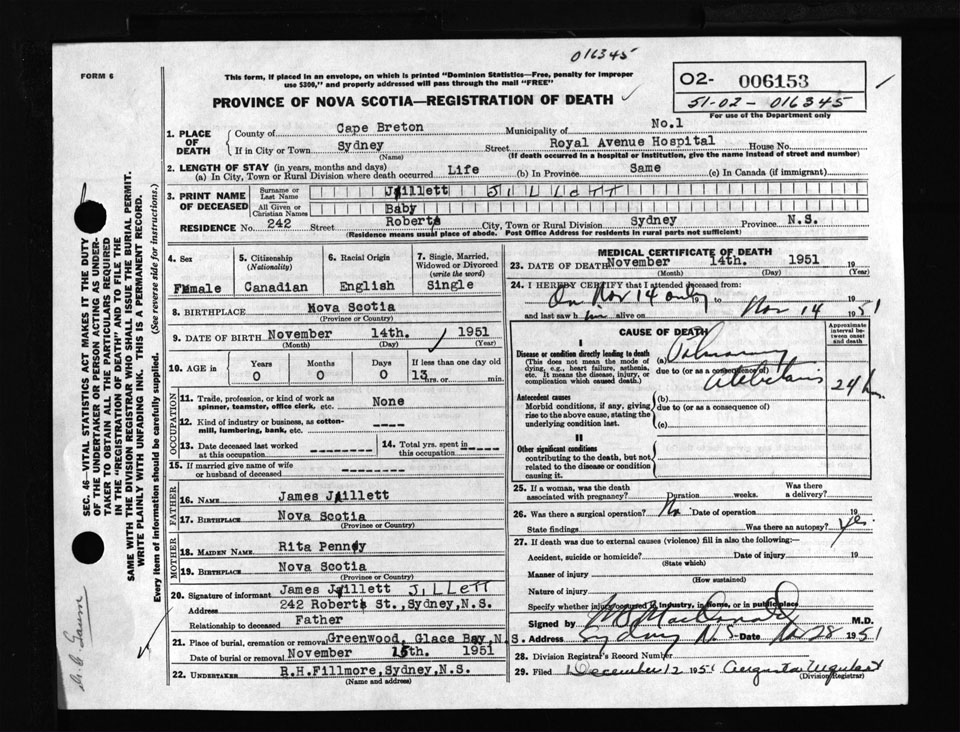 016345
FORM 6
This form, if placed in an envelope, on which is printed "Dominion Statistics—Free, penalty for improper
use $300," and properly addressed will pass through the mail "FREE"
02- 006153
51-02-016345
For use of the Department only
PROVINCE OF NOVA SCOTIA—REGISTRATION OF DEATH
1. PLACE OF DEATH
County of Cape Breton Municipality of No.1
If in City or Town Sydney Street Royal Avenue Hospital House No.
(Name) (If death occurred in a hospital or institution, give the name instead of street and number)
2. LENGTH OF STAY (in years, months and days)
(a) In City, Town or Rural Division where death occurred Life (b) In Province Same (c) In Canada (if immigrant)
3. PRINT NAME OF DECEASED
Surname or Last Name Jillett JILLETT
All Given or Christian Names Baby
RESIDENCE No. 242 Street Roberts City, Town or Rural Division Sydney Province N.S.
(Residence means usual place of abode. Post Office Address for residents in rural parts not sufficient)
4. Sex
Female
5. Citizenship
(Nationality)
Canadian
6. Racial Origin
English
7. Single, Married,
Widowed or Divorced
(write the word)
Single
8. BIRTHPLACE Nova Scotia
(Province or Country)
9. DATE OF BIRTH November 14th. 1951
(Month) (Day) (Year)
10. AGE in
Years Months Days If less than one day old
0 0 0 13 hrs. or min.
OCCUPATION
11. Trade, profession, or kind of work as
spinner, teamster, office clerk, etc. None
12. Kind of industry or business, as cotton-
mill, lumbering, bank, etc. ----
13. Date deceased last worked
at this occupation ---------
14. Total yrs. spent in
this occupation -----
15. If married give name of wife
or husband of deceased ---------
FATHER
16. NAME James Jillett
17. BIRTHPLACE Nova Scotia
(Province or Country)
MOTHER
18. MAIDEN NAME Rita Penny
19. BIRTHPLACE Nova Scotia
(Province or Country)
20. Signature of informant James Jillett JILLETT
Address 242 Roberts St.,Sydney,N.S.
Relationship to deceased Father
21. Place of burial, cremation or removal Greenwood, Glace Bay,N.S.
Date of burial or removal November 15th. 1951
22. UNDERTAKER R.H.Fillmore,Sydney,N.S.
(Name and address)
MEDICAL CERTIFICATE OF DEATH
23. DATE OF DEATH November 14th. 1951
(Month) (Day) (Year)
24. I HEREBY CERTIFY that I attended deceased from:
On Nov 14 only 19 to 19
and last saw h im alive on Nov 14 1951
CAUSE OF DEATH
Approximate
interval be-
tween onset
and death
I
Disease or condition directly leading to death
(This does not mean the mode of
dying, e.g., heart failure, asthenia,
etc. It means the disease, injury, or
complication which caused death.)
(a) Pulmonary
due to (or as a consequence of)
Atelectasis 24 h
Antecedent causes
Morbid conditions, if any, giving
rise to the above cause, stating the
underlying condition last.
(b)
due to (or as a consequence of)
(c)
II
Other significant conditions
contributing to the death, but not
related to the disease or condition
causing it.
25. If a woman, was the death
associated with pregnancy? Duration weeks. Was there
a delivery?
26. Was there a surgical operation? No Date of operation 19
State findings Was there an autopsy? Yes.
27. If death was due to external causes (violence) fill in also the following:—
Accident, suicide or homicide? Date of injury 19
(State which)
Manner of injury
(How sustained)
Nature of injury
Specify whether injury occurred in industry, in home, or in public place
Signed by MacDonald M.D.
Address Sydney N.S. Date Nov 28 1951
28. Division Registrar's Record Number
29. Filed December 12 1951 Augusta
(Division Registrar)
SEC. 46—VITAL STATISTICS ACT MAKES IT THE DUTY
OF THE UNDERTAKER OR PERSON ACTING AS UNDER-
TAKER TO OBTAIN ALL THE PARTICULARS REQUIRED
IN THE "REGISTRATION OF DEATH" AND TO FILE THE
SAME WITH THE DIVISION REGISTRAR WHO SHALL ISSUE THE BURIAL PERMIT.
WRITE PLAINLY WITH UNFADING INK. THIS IS A PERMANENT RECORD.
Every item of information should be carefully supplied. (See reverse side for instructions.)